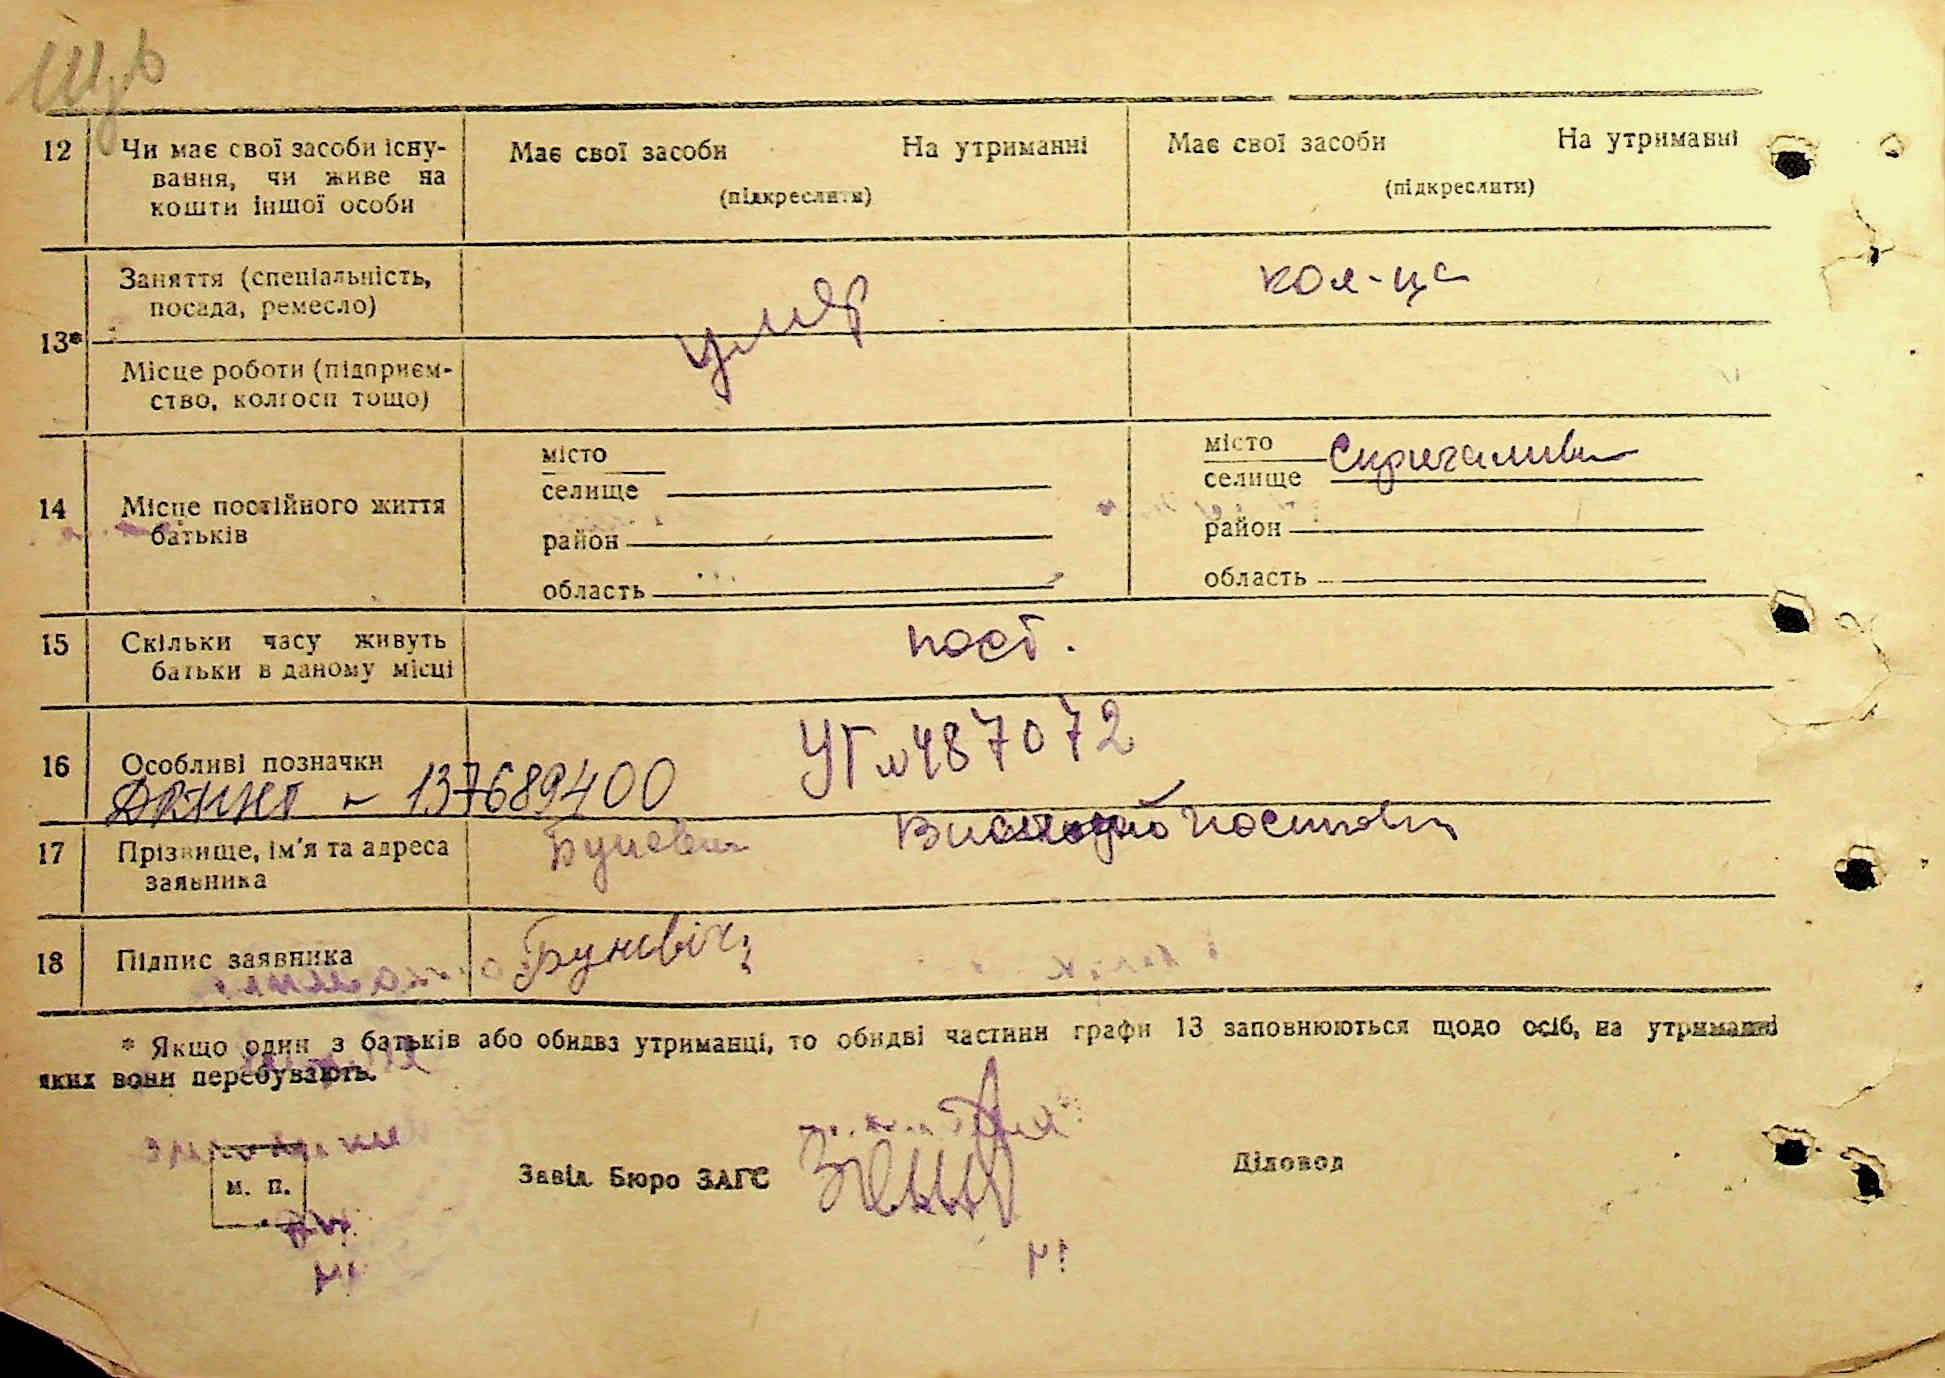 12 Чи має свої засоби існу-
вання, чи живе на
кошти іншої особи
Має свої засоби На утриманні
(підкреслити)
Має свої засоби На утриманні
(підкреслити)
13* Заняття (спеціальність,
посада, ремесло)
умер
кол-ца
Місце роботи (підприєм-
ство, колгосп тощо)
14 Місце постійного життя
батьків
місто
селище
район
область
місто
селище
район
область
15 Скільки часу живуть
батьки в даному місці
пост.
16 Особливі позначки
УГ № 487072
137689400
17 Прізвище, ім'я та адреса
заявника
18 Підпис заявника
* Якщо один з батьків або обидва утриманці, то обидві частини графи 13 заповнюються щодо осіб, на утриманні
яких вони перебувають.
м. п.
Завід. Бюро ЗАГС
Діловод